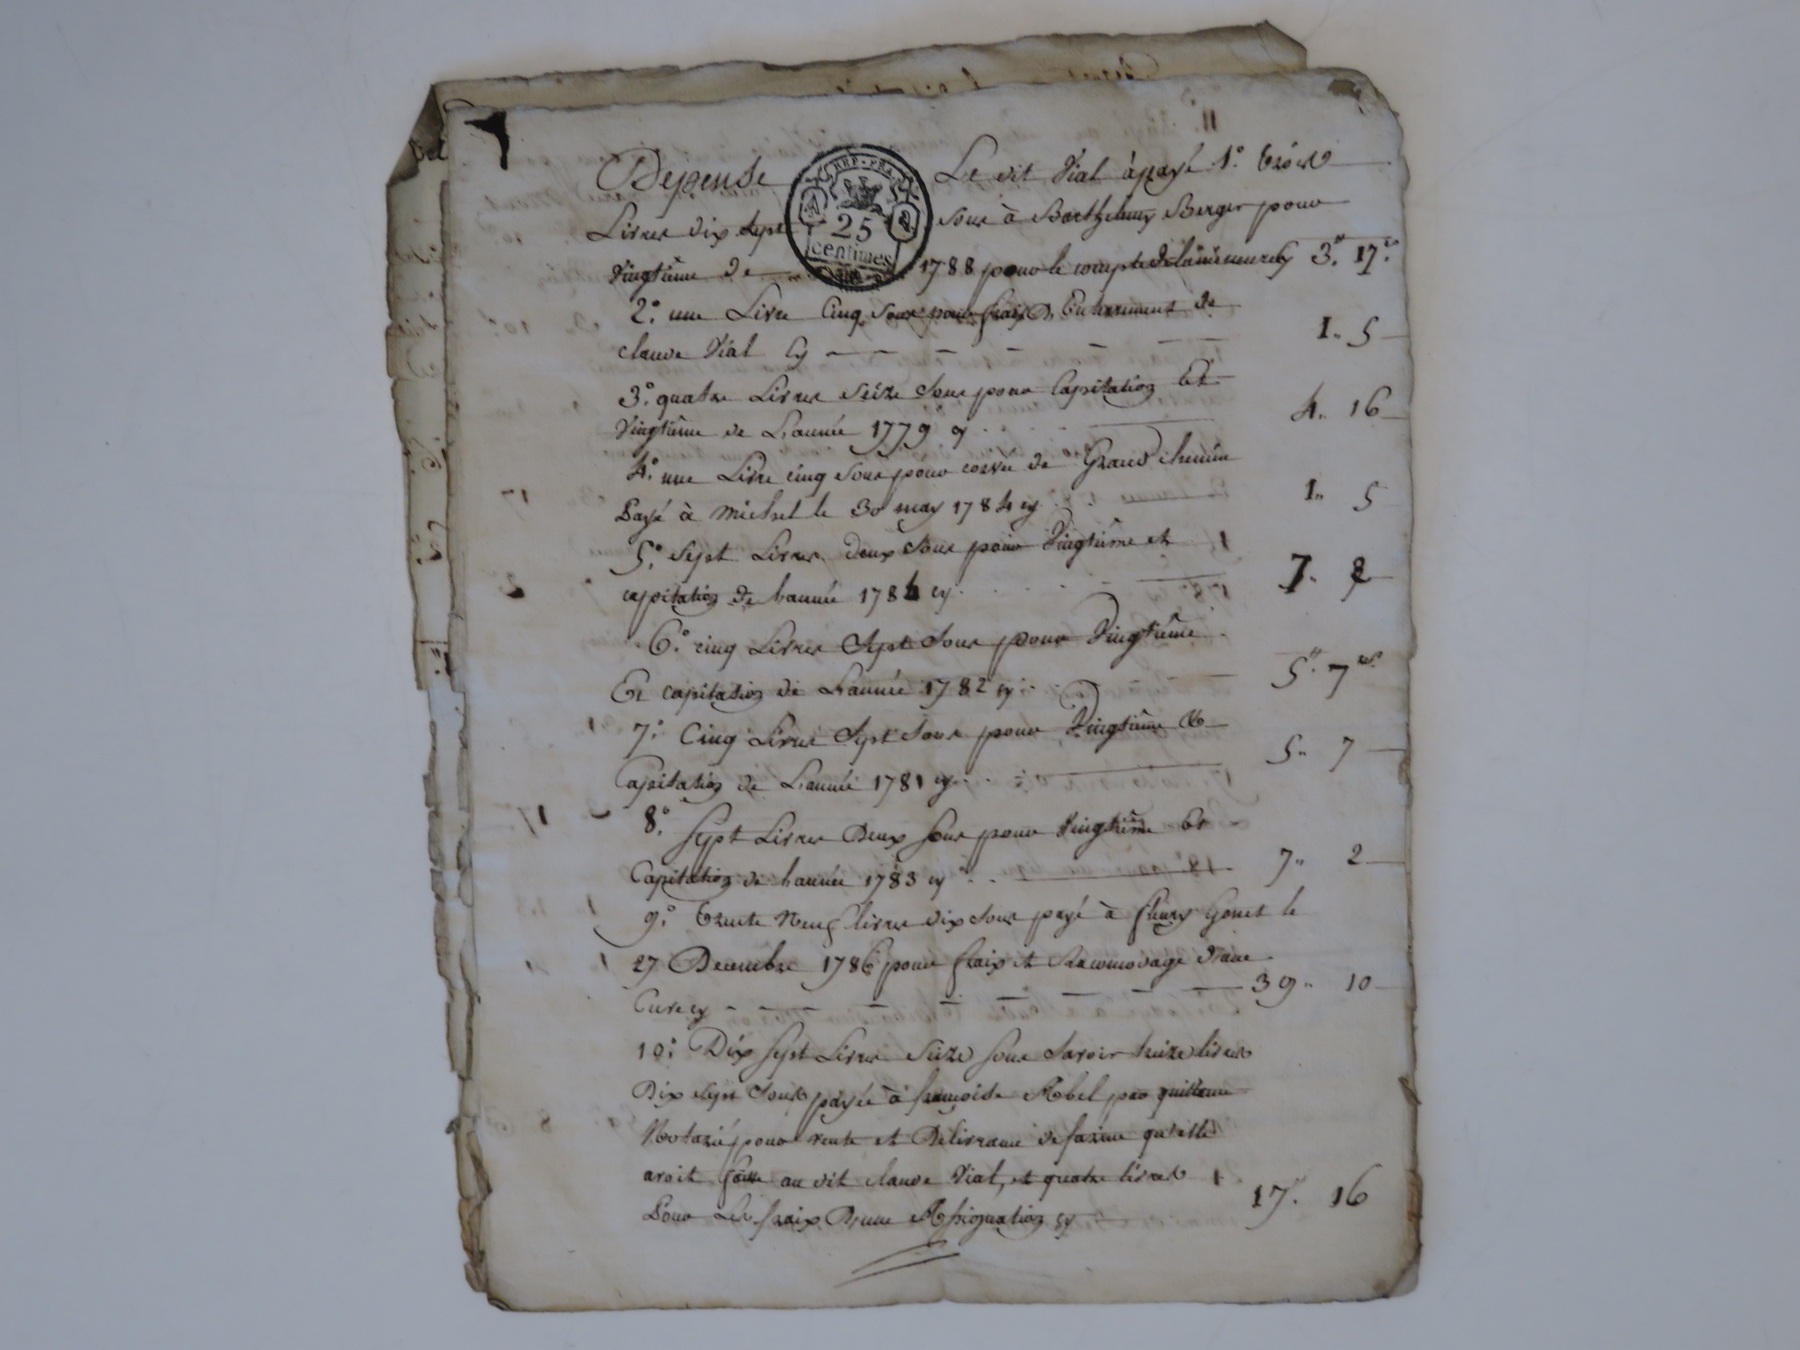 Depense Le dit Vial à payé 1º trois
REP. FRA
25
centimes
Livres dix sept sous à Barthelemy Berger pour
Vingtième de 1788 pour le compte de la mineure cy 3. 17.s
2º. une Livre Cinq Sous pour fraix D'Enterrement de
claude Vial Cy 1" 5
3º. quatre Livres Seize Sous pour Capitation Et
Vingtième de L'année 1779 cy 4" 16
4º. une Livre cinq Sous pour corvée de Grand chemin
Payé à michel le 30 may 1784 cy 1" 5
5º. Sept Livres Deux Sous pour Vingtième et
capitation de l'année 1784 cy 7" 2
6º. cinq Livres Sept Sous pour Vingtième
Et capitation de L'année 1782 cy 5" 7s.
7º. Cinq Livres Sept Sous pour Vingtième &
Capitation de L'année 1781 cy 5" 7
8º. Sept Livres Deux Sous pour Vingtième Et
Capitation de L'année 1783 cy 7" 2
9º. Trente Neuf livres dix Sous payé à fleury le
27 Decembre 1786 pour fraix et Racomodage d'une
Cuve cy 39" 10
10º. Dix Sept Livres Seize Sous Savoir treize livres
Dix Sept Sous payée à françoise Abel par quittance
Notarié pour vente et Delivrance de farine qu'elle
avoit faitte au dit claude Vial, et quatre livres
Pour Les fraix D'une Assignation cy 17. 16